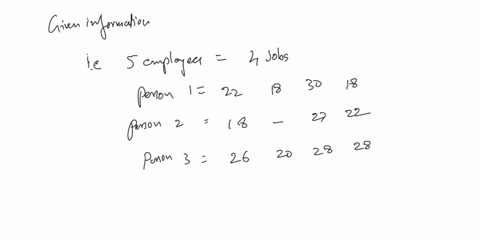 Given information
i.e 5 employees = 4 Jobs
Person 1 = 22 18 30 18
Person 2 = 18 — 27 22
Person 3 = 26 20 28 28